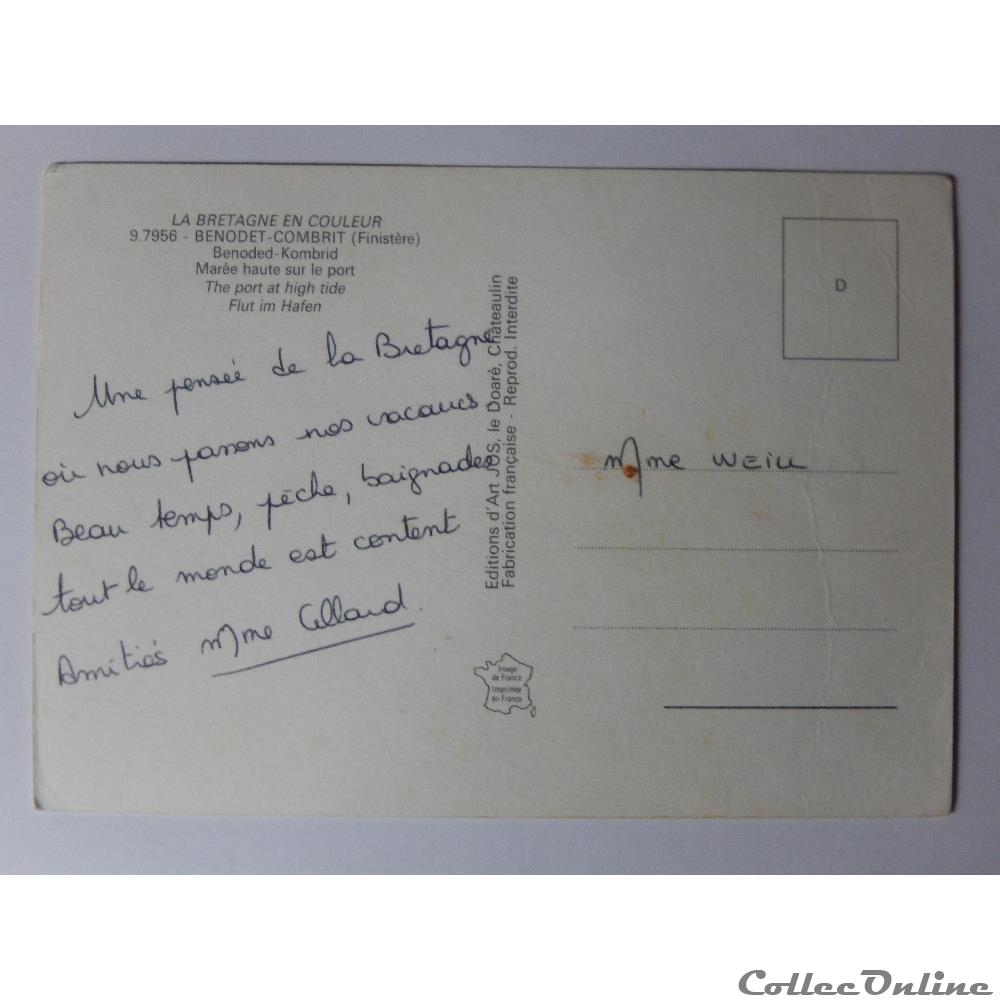 LA BRETAGNE EN COULEUR
9.7956 - BENODET-COMBRIT (Finistère)
Benoded-Kombrid
Marée haute sur le port
The port at high tide
Flut im Hafen
Une pensée de la Bretagne
où nous passons nos vacances.
Beau temps, pêche, baignades
tout le monde est content
Amitiés Mme
Editions d'Art JOS, le Doaré, Châteaulin
Fabrication française - Reprod. Interdite
Image
de France
Imprimée
en France
D
Mme WEILL
CollecOnline